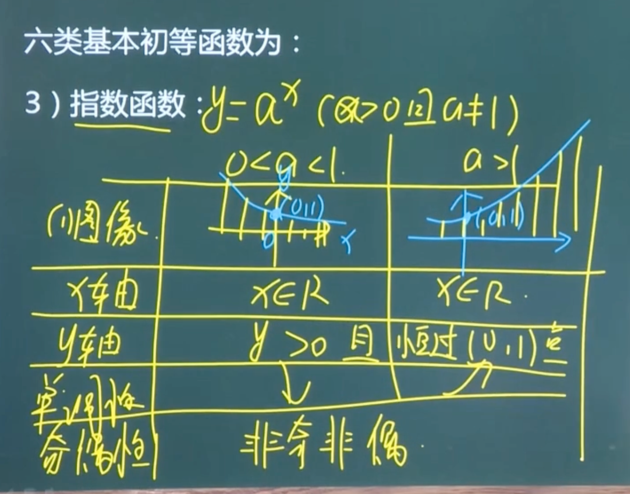 六类基本初等函数为：
3）指数函数：y=a^x (a>0且a≠1)
0<a<1 a>1
(1)图像 y (0,1) 0 x (0,1)
x轴 x∈R x∈R.
y轴 y>0 且 恒过(0,1)点
单调性 ↘ ↗
奇偶性 非奇非偶.